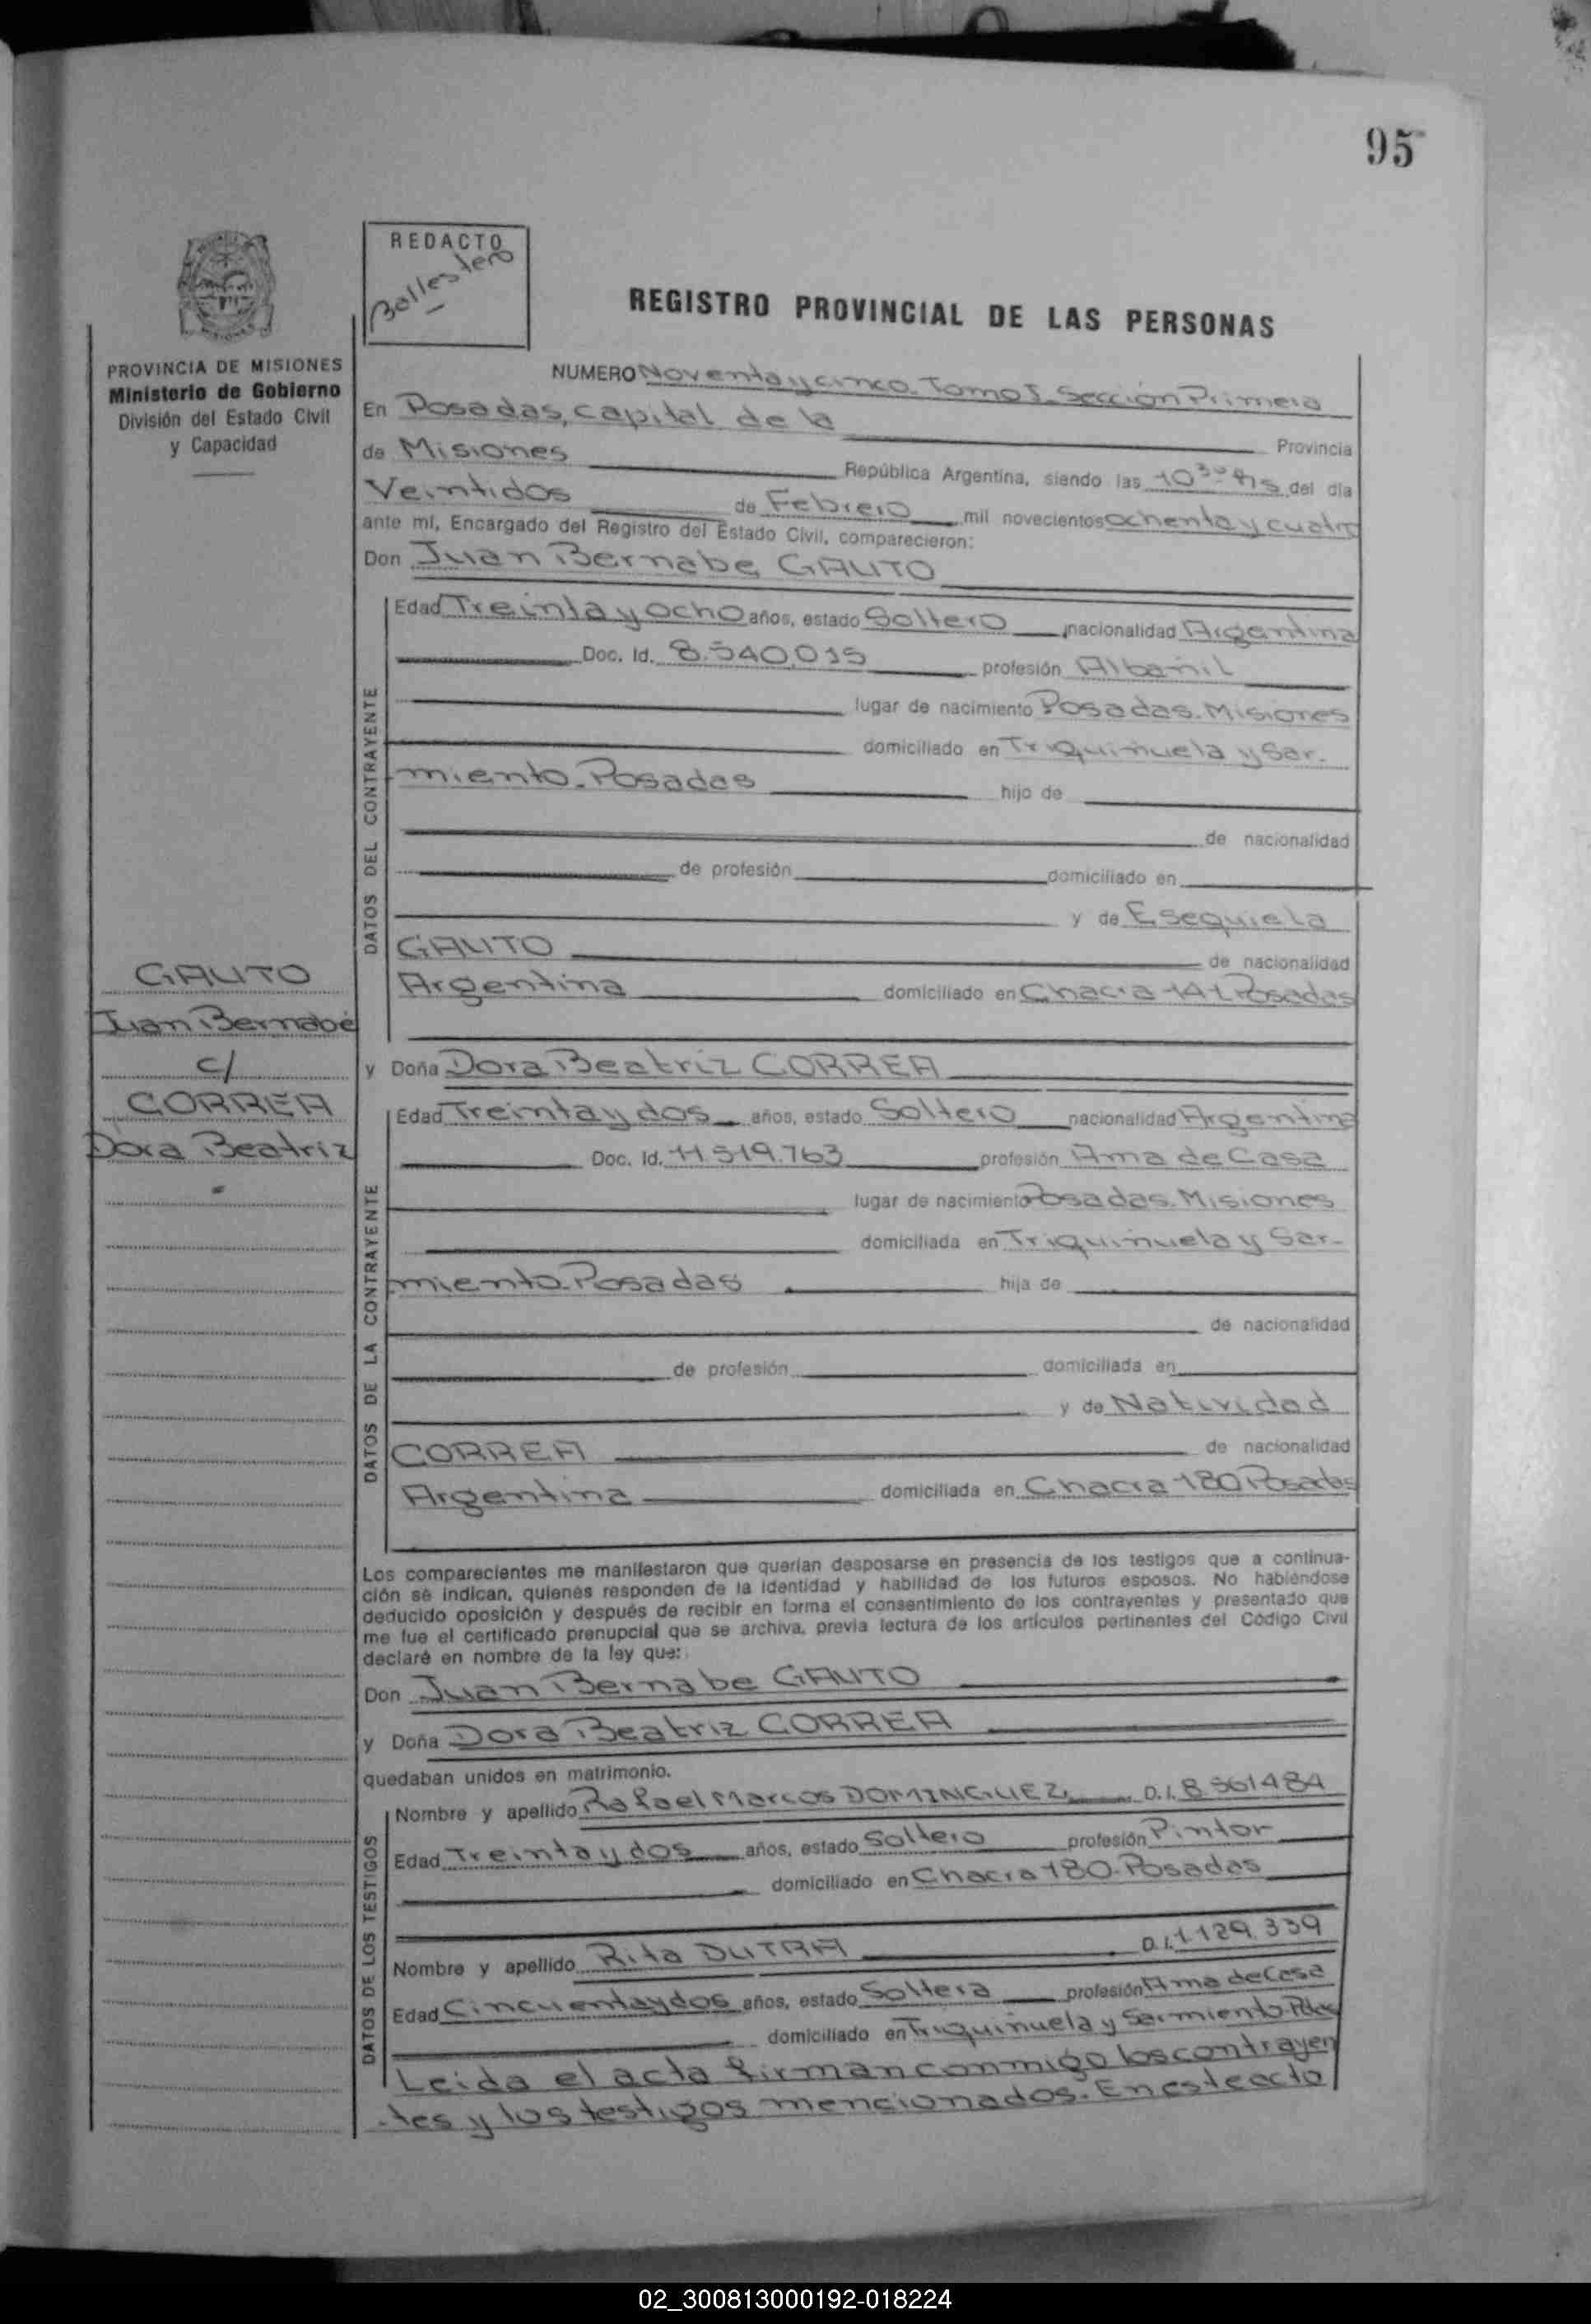 95
REDACTO
Ballestero
PROVINCIA DE MISIONES
Ministerio de Gobierno
División del Estado Civil
y Capacidad
REGISTRO PROVINCIAL DE LAS PERSONAS
NUMERO Noventa y cinco. Tomo I. Sección Primera
En Posadas, capital de la Provincia
de Misiones República Argentina, siendo las 10³⁰ hs del día
Veintidos de Febrero mil novecientos ochenta y cuatro
ante mí, Encargado del Registro del Estado Civil, comparecieron:
Don Juan Bernabe GAUTO
DATOS DEL CONTRAYENTE
Edad Treinta y ocho años, estado Soltero nacionalidad Argentina
Doc. Id. 8.540.015 profesión Albañil
lugar de nacimiento Posadas. Misiones
domiciliado en Triquiñuela y Sar-
miento. Posadas hijo de
de nacionalidad
de profesión domiciliado en
y de Esequiela
GAUTO de nacionalidad
Argentina domiciliado en Chacra 141 Posadas
GAUTO
Juan Bernabé
c/
CORREA
Dora Beatriz
y Doña Dora Beatriz CORREA
DATOS DE LA CONTRAYENTE
Edad Treinta y dos años, estado Soltero nacionalidad Argentina
Doc. Id. 11.519.763 profesión Ama de Casa
lugar de nacimiento Posadas. Misiones
domiciliada en Triquiñuela y Sar-
miento. Posadas hija de
de nacionalidad
de profesión domiciliada en
y de Natividad
CORREA de nacionalidad
Argentina domiciliada en Chacra 180 Posadas
Los comparecientes me manifestaron que querían desposarse en presencia de los testigos que a continua-
ción se indican, quienes responden de la identidad y habilidad de los futuros esposos. No habiéndose
deducido oposición y después de recibir en forma el consentimiento de los contrayentes y presentado que
me fue el certificado prenupcial que se archiva, previa lectura de los artículos pertinentes del Código Civil
declaré en nombre de la ley que:
Don Juan Bernabe GAUTO
y Doña Dora Beatriz CORREA
quedaban unidos en matrimonio.
DATOS DE LOS TESTIGOS
Nombre y apellido Rafael Marcos DOMINGUEZ D.I. 8.561484
Edad Treinta y dos años, estado Soltero profesión Pintor
domiciliado en Chacra 180. Posadas
Nombre y apellido Rita DUTRA D.I. 1.129.339
Edad Cincuenta y dos años, estado Soltera profesión Ama de Casa
domiciliado en Triquiñuela y Sarmiento.
Leida el acta firman conmigo los contrayen
tes y los testigos mencionados. En este acto
02_300813000192-018224